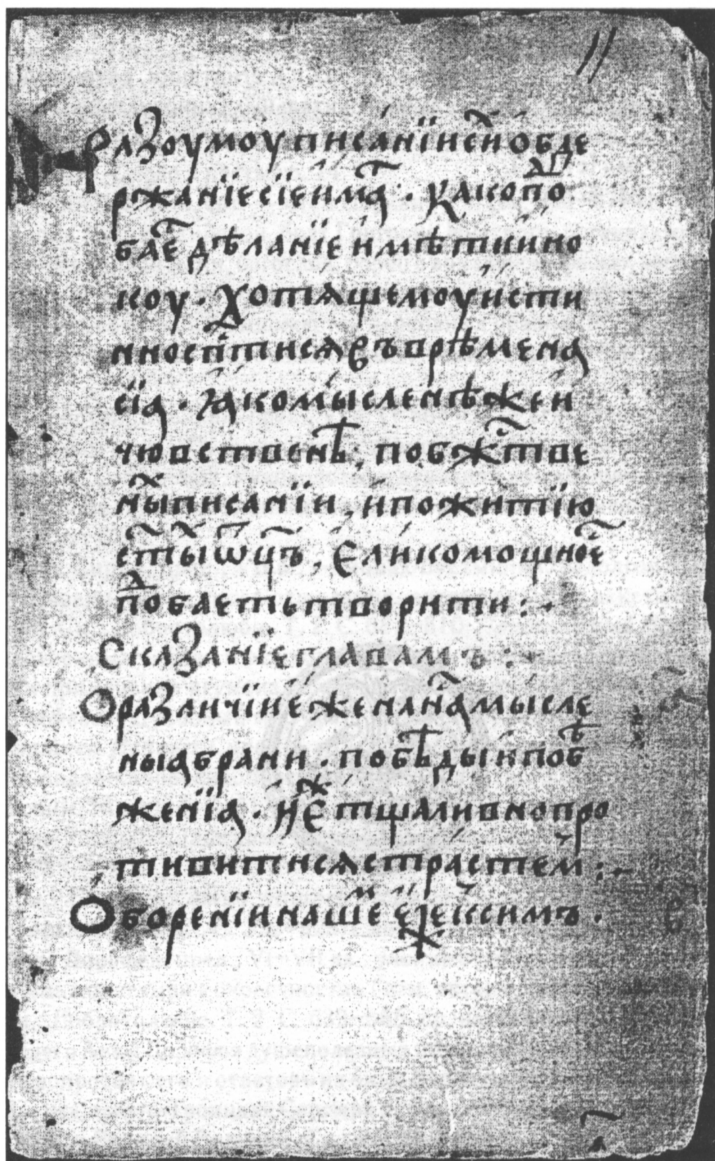 11
Разоумоу писанїи сн҃ обде
ржанїе сїе има҄т . како по҄д
бае҄т дѣланїе имѣти ино
коу . хотѧщемоу исти
нно сп҃тисѧ въ врѣмена
сїа . ꙗко мысленѣ же и
чювственѣ , по бж҃тве
ны҄х писанїи , и по житїю
ст҃ы҄х ѿц҃ъ , елико мощно е҄с
по҄дбаеть творити :
Сказанїе главамъ :
О разлічїи еже на на҄с мысле
ныа брани . побѣды и побѣ
женїа . и е҄ж тщаливно про
тивитисѧ страстем :
О борении наше҄м